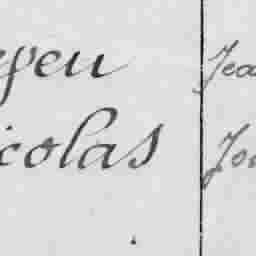 yeu Jea
icolas Jo